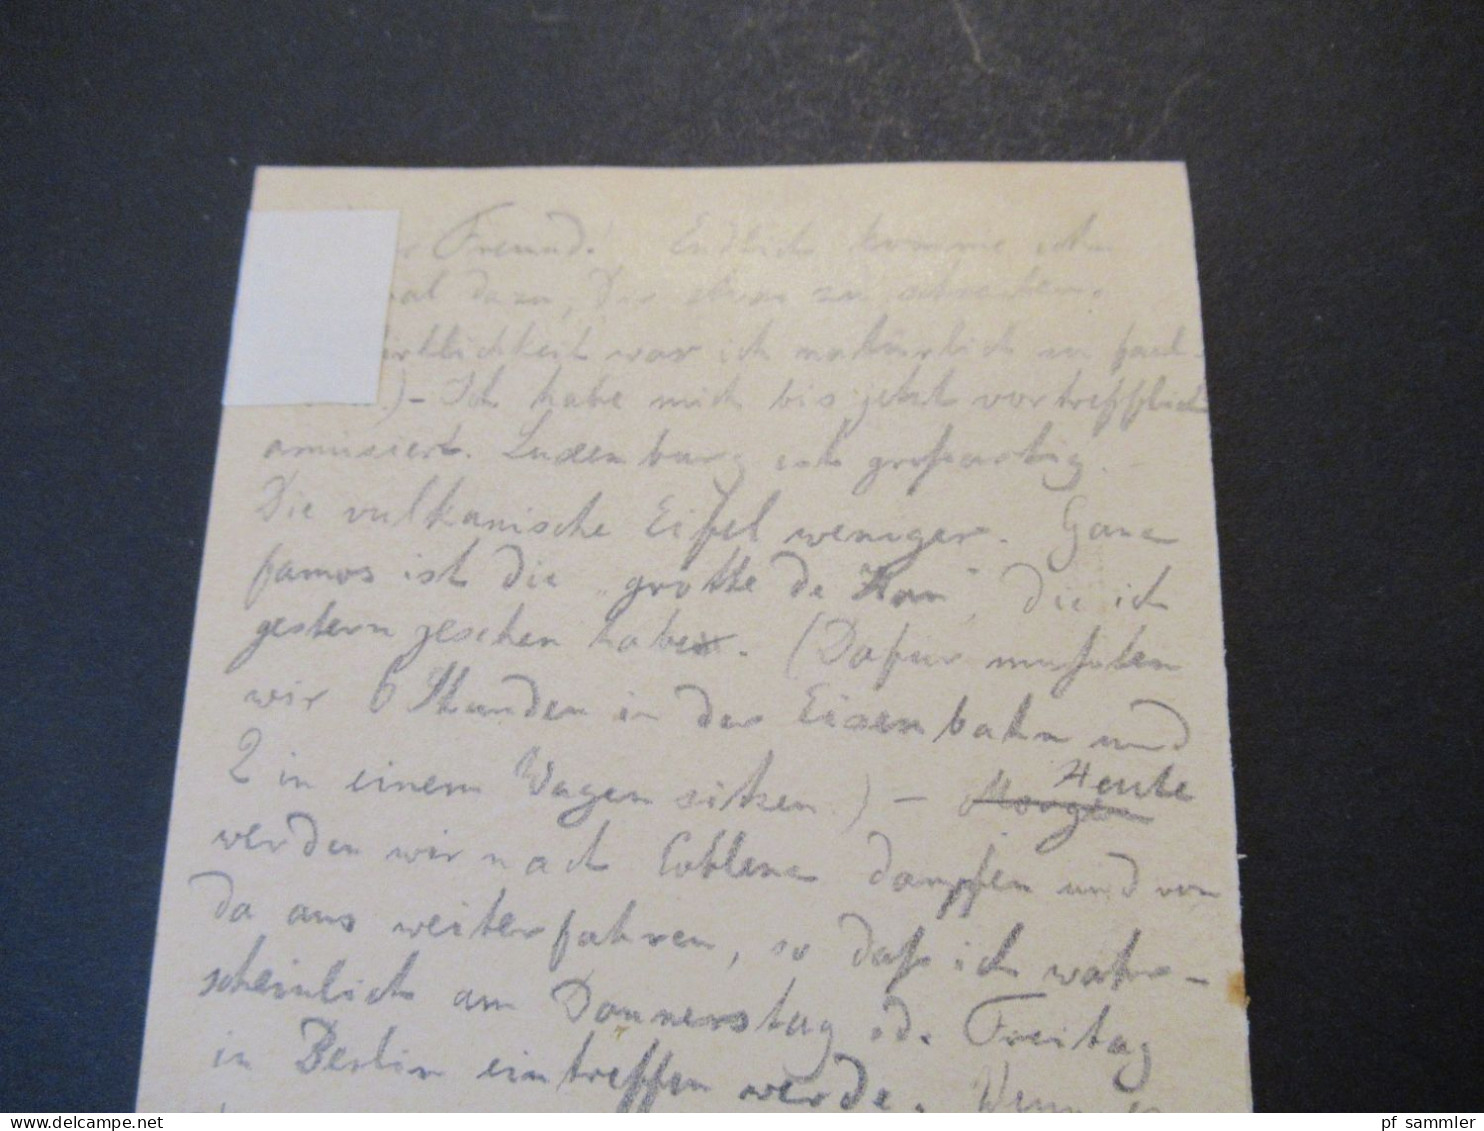 Freund! Endlich komme ich
mal dazu, Dir etwas zu schreiben.
Wirklichkeit war ich natürlich zu faul
.)- Ich habe mich bis jetzt vortrefflich
amüsiert. Luxenburg ist großartig. -
Die vulkanische Eifel weniger. Ganz
famos ist die „grotte de Han", die ich
gestern gesehen habe. (Dafür mußten
wir 6 Stunden in der Eisenbahn und
2 in einem Wagen sitzen) - Morgen Heute
werden wir nach Coblenz dampfen und von
da aus weiterfahren, so daß ich wahr-
scheinlich am Donnerstag od. Freitag
in Berlin eintreffen werde. Wenn es
delcampe.net
pf_sammler